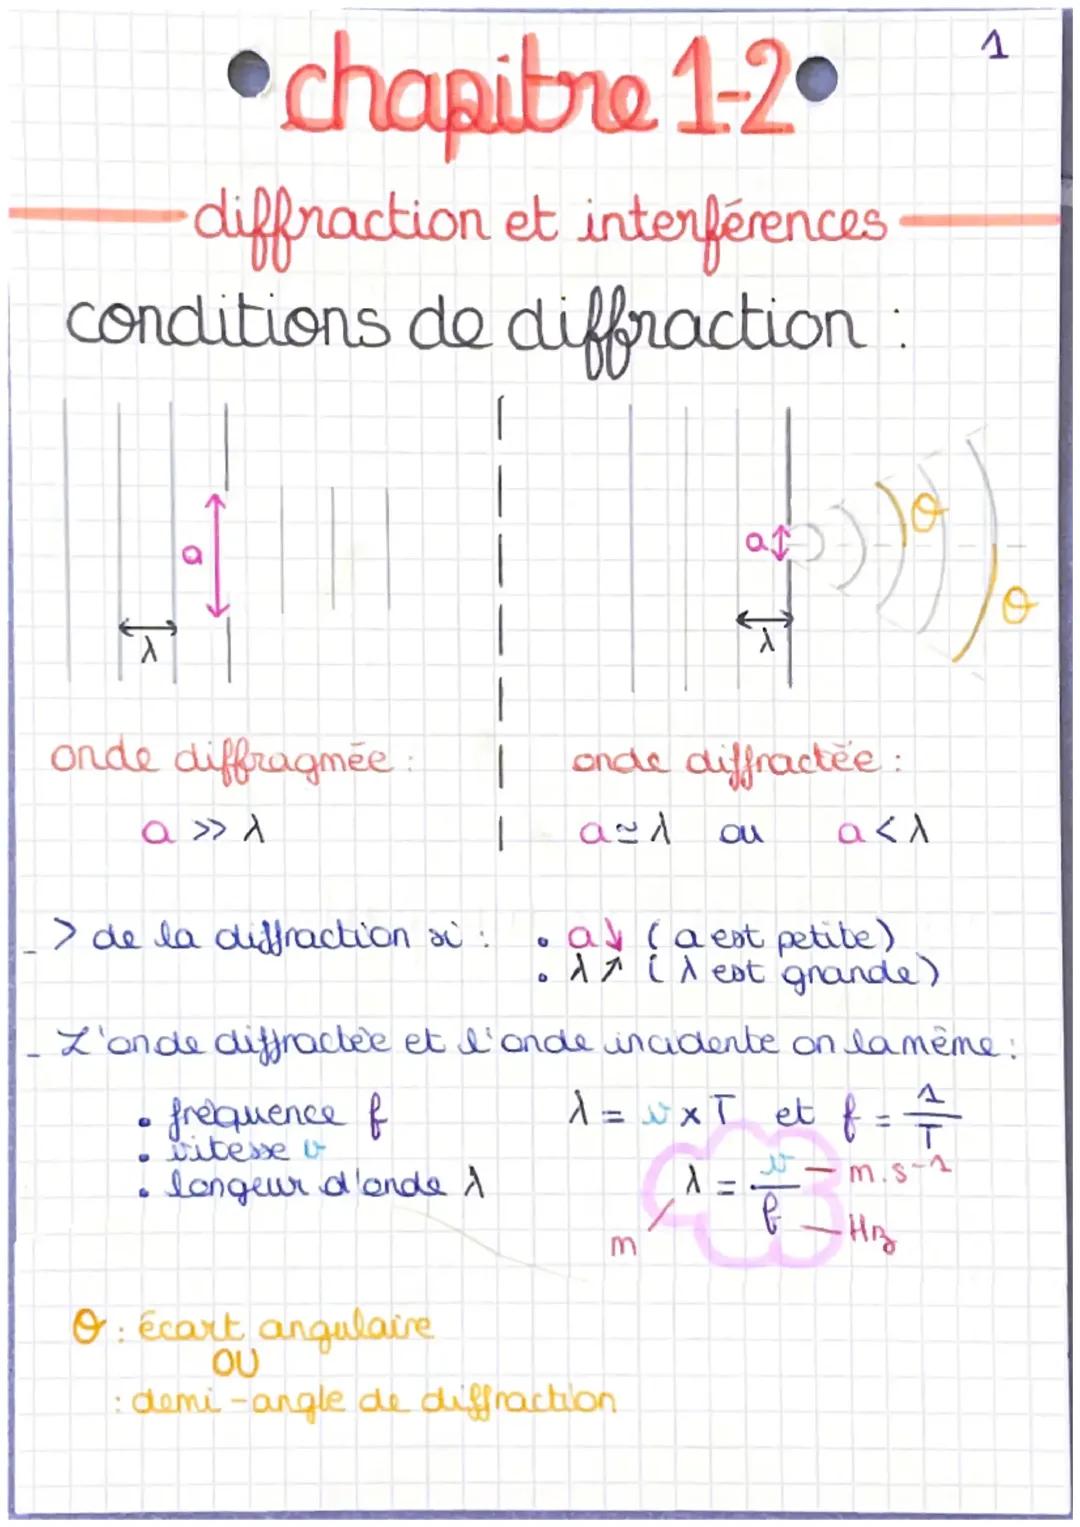 1
• chapitre 1-2 •
diffraction et interférences
conditions de diffraction :
a
λ
a
λ
θ
θ
onde diffragmée :
a >> λ
onde diffractée :
a ≃ λ ou a < λ
_ > de la diffraction si : • a↓ (a est petite)
• λ↗ (λ est grande)
_ L'onde diffractée et l'onde incidente on la même :
• fréquence f
• vitesse v
• longeur d'onde λ
λ = v × T et f = 1/T
λ = v/f
m.s-1
Hz
m
θ : écart angulaire
OU
: demi-angle de diffraction